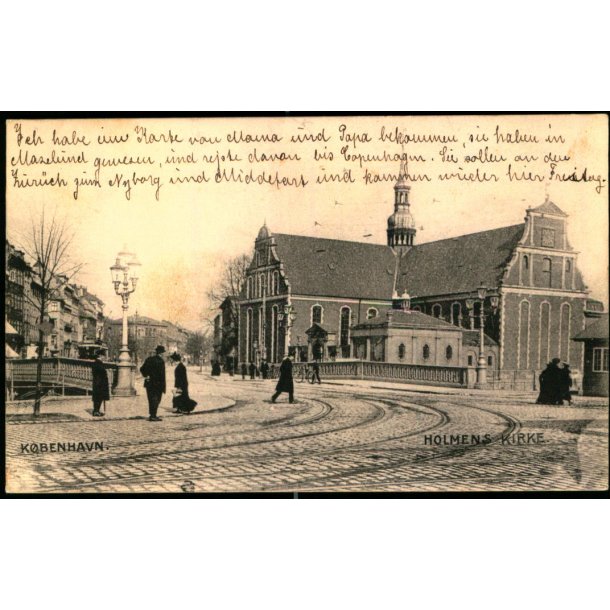 Ich habe eine Karte von Mama und Papa bekommen, sie haben in
gewesen, und reiste davon bis Copenhagen. Sie sollen an den
zurück zum Nyborg und Middelfart und kommen wieder hier Freitag.
KØBENHAVN.
HOLMENS KIRKE